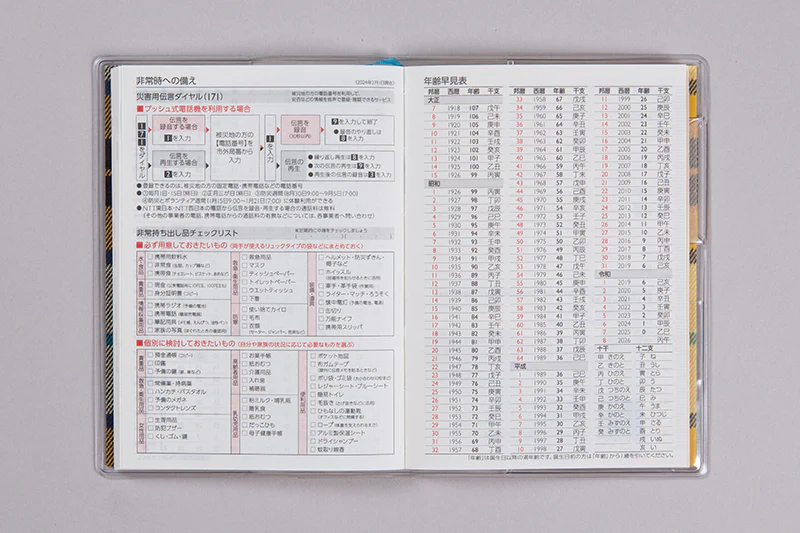 非常時への備え
(2024年2月1日現在)
災害用伝言ダイヤル(171)
被災地の方の電話番号を利用して、
安否などの情報を音声で登録・確認できるサービス
■プッシュ式電話機を利用する場合
171をダイヤル
伝言を
録音する場合
1を入力
伝言を
再生する場合
2を入力
被災地の方の
【電話番号】を
市外局番から
入力
1を入力
伝言を
録音
(30秒以内)
9を入力して終了
●録音のやり直しは
8を入力
伝言の
再生
●繰り返し再生は8を入力
●次の伝言の再生は9を入力
●再生後の伝言の録音は3を入力
●登録できるのは、被災地の方の固定電話・携帯電話などの電話番号
●①毎月1日・15日(終日) ②正月三が日(終日) ③防災週間(8月30日9:00～9月5日17:00)
④防災とボランティア週間(1月15日9:00～1月21日17:00)に体験利用ができる
●NTT東日本・NTT西日本の電話から伝言を録音・再生する場合の通話料は無料
(その他の事業者の電話、携帯電話からの通話料の有無などについては、各事業者へ問い合わせ)
非常持ち出し品チェックリスト
年2回ほど中身をチェックしましょう
■必ず用意しておきたいもの(両手が使えるリュックタイプの袋などにまとめておく)
水・食品
□携帯用飲料水
□非常食(缶詰、カップ麺など)
□携帯食(チョコレート、ビスケット、あめなど)
貴重品
□現金(公衆電話用に10円玉、100円玉も)
□身分証明書(コピー)
情報収集用品
□携帯ラジオ(予備の電池)
□携帯電話(携帯充電器)
□筆記用具(メモ帳、えんぴつ、油性ペン)
□家族の写真(はぐれたときの確認用)
救急・衛生用品
□救急用品
□マスク
□ティッシュペーパー
□トイレットペーパー
□ウエットティッシュ
□下着
防寒
□使い捨てカイロ
□毛布
□衣類
(セーター、ジャンパー、雨具など)
装備・道具
□ヘルメット・防災ずきん・
帽子など
□ホイッスル
(居場所を知らせるときに活用)
□軍手・革手袋(作業用)
□ライター・マッチ・ろうそく
□懐中電灯(予備の電池、電球)
□缶切り
□万能ナイフ
□携帯用スリッパ
■個別に検討しておきたいもの(自分や家族の状況に応じて必要なものを選ぶ)
貴重品
□預金通帳(コピー)
□印鑑
□予備の鍵(家、車など)
救急・衛生用品
□常備薬・持病薬
□ハンカチ・バスタオル
□予備のメガネ
□コンタクトレンズ
女性用品
□生理用品
□防犯ブザー
□くし・ゴム・鏡
高齢者用品
□お薬手帳
□紙おむつ
□介護用品
□入れ歯
□補聴器
乳児用品
□粉ミルク・哺乳瓶
□離乳食
□紙おむつ
□だっこひも
□母子健康手帳
便利用品
□ポケット地図
□布ガムテープ
□ポリ袋・ゴミ袋
□レジャーシート・ブルーシート
□簡易トイレ
□毛抜き
□ひもなしの運動靴
□ロープ
□アルミ製保温シート
□ドライシャンプー
□蚊取り線香
年齢早見表
邦暦 西暦 年齢 干支
大正
7 1918 107 戊午
8 1919 106 己未
9 1920 105 庚申
10 1921 104 辛酉
11 1922 103 壬戌
12 1923 102 癸亥
13 1924 101 甲子
14 1925 100 乙丑
15 1926 99 丙寅
昭和
1 1926 99 丙寅
2 1927 98 丁卯
3 1928 97 戊辰
4 1929 96 己巳
5 1930 95 庚午
6 1931 94 辛未
7 1932 93 壬申
8 1933 92 癸酉
9 1934 91 甲戌
10 1935 90 乙亥
11 1936 89 丙子
12 1937 88 丁丑
13 1938 87 戊寅
14 1939 86 己卯
15 1940 85 庚辰
16 1941 84 辛巳
17 1942 83 壬午
18 1943 82 癸未
19 1944 81 甲申
20 1945 80 乙酉
21 1946 79 丙戌
22 1947 78 丁亥
23 1948 77 戊子
24 1949 76 己丑
25 1950 75 庚寅
26 1951 74 辛卯
27 1952 73 壬辰
28 1953 72 癸巳
29 1954 71 甲午
30 1955 70 乙未
31 1956 69 丙申
32 1957 68 丁酉
邦暦 西暦 年齢 干支
33 1958 67 戊戌
34 1959 66 己亥
35 1960 65 庚子
36 1961 64 辛丑
37 1962 63 壬寅
38 1963 62 癸卯
39 1964 61 甲辰
40 1965 60 乙巳
41 1966 59 丙午
42 1967 58 丁未
43 1968 57 戊申
44 1969 56 己酉
45 1970 55 庚戌
46 1971 54 辛亥
47 1972 53 壬子
48 1973 52 癸丑
49 1974 51 甲寅
50 1975 50 乙卯
51 1976 49 丙辰
52 1977 48 丁巳
53 1978 47 戊午
54 1979 46 己未
55 1980 45 庚申
56 1981 44 辛酉
57 1982 43 壬戌
58 1983 42 癸亥
59 1984 41 甲子
60 1985 40 乙丑
61 1986 39 丙寅
62 1987 38 丁卯
63 1988 37 戊辰
64 1989 36 己巳
平成
1 1989 36 己巳
2 1990 35 庚午
3 1991 34 辛未
4 1992 33 壬申
5 1993 32 癸酉
6 1994 31 甲戌
7 1995 30 乙亥
8 1996 29 丙子
9 1997 28 丁丑
10 1998 27 戊寅
邦暦 西暦 年齢 干支
11 1999 26 己卯
12 2000 25 庚辰
13 2001 24 辛巳
14 2002 23 壬午
15 2003 22 癸未
16 2004 21 甲申
17 2005 20 乙酉
18 2006 19 丙戌
19 2007 18 丁亥
20 2008 17 戊子
21 2009 16 己丑
22 2010 15 庚寅
23 2011 14 辛卯
24 2012 13 壬辰
25 2013 12 癸巳
26 2014 11 甲午
27 2015 10 乙未
28 2016 9 丙申
29 2017 8 丁酉
30 2018 7 戊戌
31 2019 6 己亥
令和
1 2019 6 己亥
2 2020 5 庚子
3 2021 4 辛丑
4 2022 3 壬寅
5 2023 2 癸卯
6 2024 1 甲辰
7 2025 0 乙巳
8 2026 丙午
十干 十二支
甲 きのえ 子 ね
乙 きのと 丑 うし
丙 ひのえ 寅 とら
丁 ひのと 卯 う
戊 つちのえ 辰 たつ
己 つちのと 巳 み
庚 かのえ 午 うま
辛 かのと 未 ひつじ
壬 みずのえ 申 さる
癸 みずのと 酉 とり
戌 いぬ
亥 い
「年齢」は誕生日以降の満年齢です。誕生日前の方は「年齢」から1歳を引いてください。